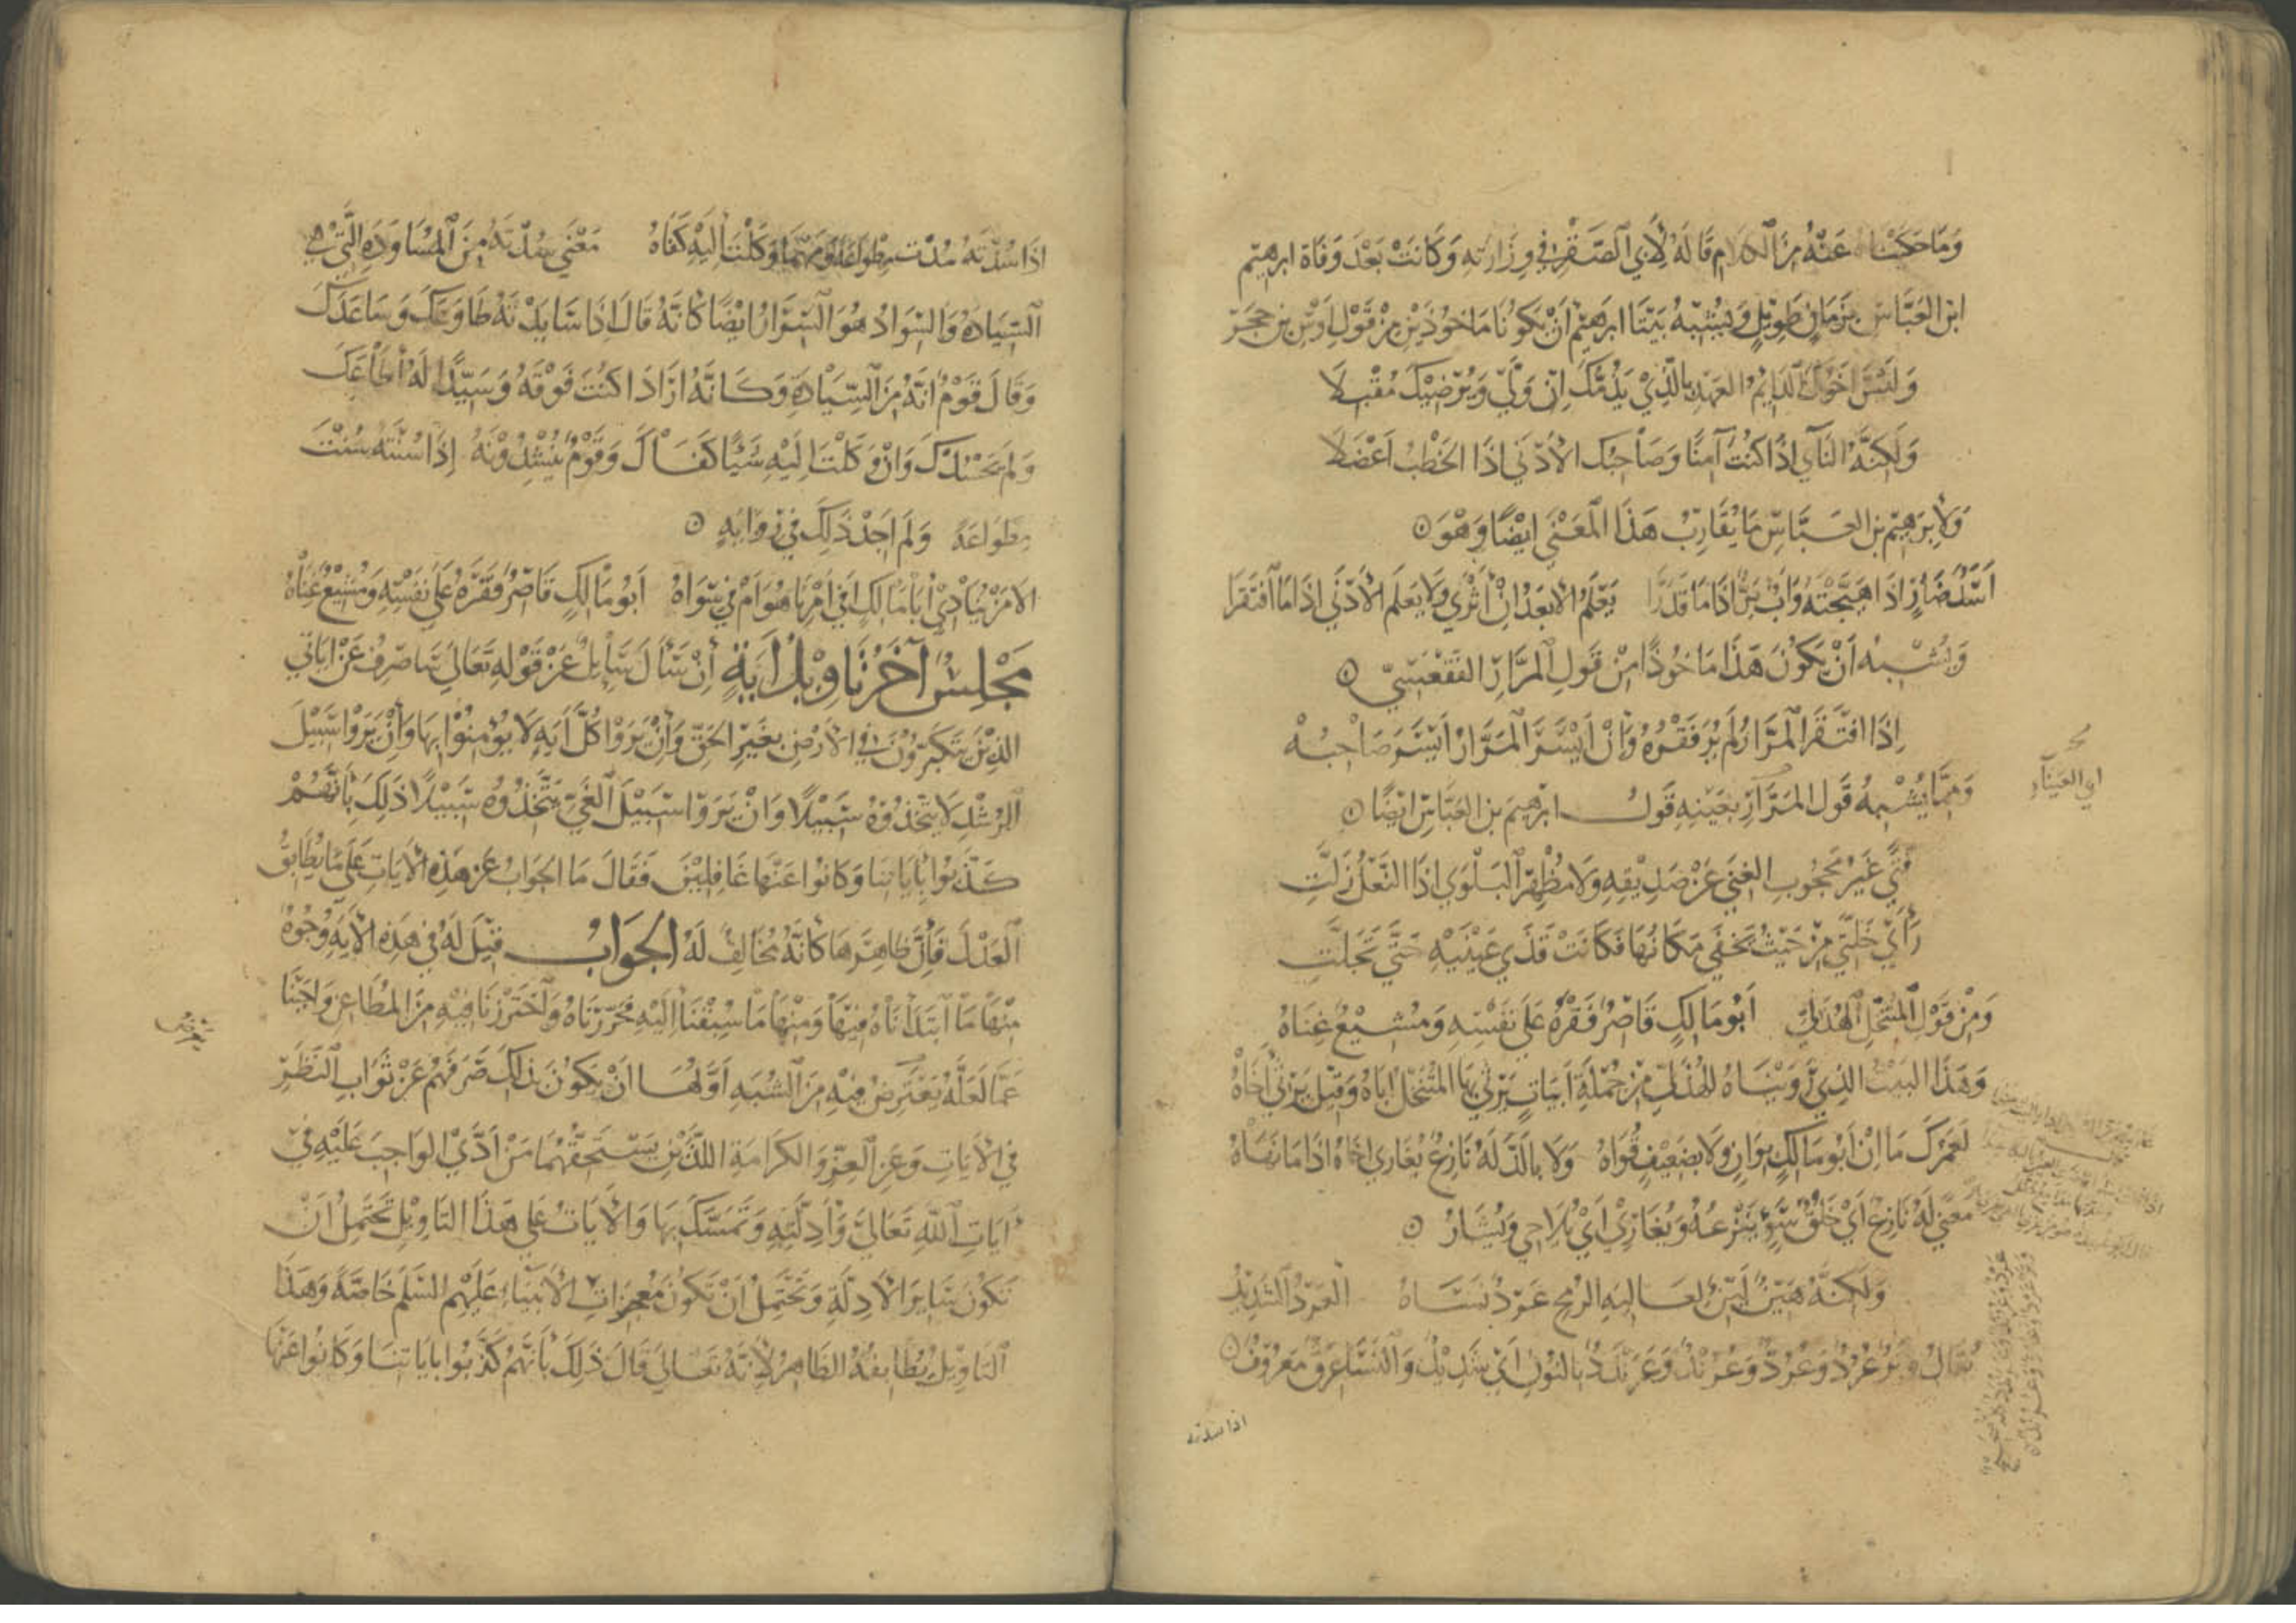 وَمَا حَكَيْنَاهُ عَنْهُ مِنَ الْكَلَامِ قَالَهُ لِأَبِي الصَّقْرِ فِي وِزَارَتِهِ وَكَانَتْ بَعْدَ وَفَاةِ ابرهيم
ابن العَبَّاسِ بِزَمَانٍ طَوِيلٍ وَيُشْبِهُ بَيْتَا ابرهيم أَنْ يَكُونَا مَاخُوذَيْنِ مِنْ قَوْلِ أَوْسِ بْنِ حَجَرٍ
وَلَيْسَ أَخُوكَ الدَّايِمُ العَهْدِ بِالَّذِي يَذُمُّكَ إِنْ وَلَّى وَيُرْضِيكَ مُقْبِلَا
وَلَكِنَّهُ النَّآيِ إِذَا كُنْتَ آمِنًا وَصَاحِبُكَ الأَدْنَى إِذَا الخَطْبُ أَعْضَلَا
وَلِإِبْرَهِيمَ بنِ العَبَّاسِ مَا يُقَارِبُ هَذَا المَعْنَى ايْضًا وَهْوَ
أَسَدٌ ضَارٍ إِذَا هَيَّجْتَهُ وَأَبٌ بَرٌّ إِذَا مَا قَدَرَا يَعْلَمُ الأَبْعَدُ إِنْ أَثْرَى وَلَا يَعْلَمُ الأَدْنَى إِذَا مَا افْتَقَرَا
وَيُشْبِهُ أَنْ يَكُونَ هَذَا مَاخُوذًا مِنْ قَوْلِ المَرَّارِ الفَقْعَسِيِّ
إِذَا افْتَقَرَ المَرَّارُ لَمْ يُرَ فَقْرُهُ وَإِنْ أَيْسَرَ المَرَّارُ أَيْسَرَ صَاحِبُهْ
وَمِمَّا يُشْبِهُ قَوْلَ المَرَّارِ بِعَيْنِهِ قَوْلُ ابرهيم بن العَبَّاسِ ايْضًا
فَتًى غَيْرُ مَحْجُوبِ الغِنَى عَنْ صَدِيقِهِ وَلَا مُظْهِرُ البَلْوَى إِذَا النَّعْلُ زَلَّتِ
رَأَى خَلَّتِي مِنْ حَيْثُ يَخْفَى مَكَانُهَا فَكَانَتْ قَذَى عَيْنَيْهِ حَتَّى تَجَلَّتِ
وَمِنْ قَوْلِ المُتَنَخِّلِ الهُذَلِيِّ أَبُو مَالِكٍ قَاصِرٌ فَقْرَهُ عَلَى نَفْسِهِ وَمُشِيعٌ غِنَاهُ
وَهَذَا البَيْتُ الَّذِي رَوَيْنَاهُ لِلْهُذَلِيِّ مِنْ جُمْلَةِ أَبْيَاتٍ يَرْثِي بِهَا المُتَنَخِّلُ أَبَاهُ وَقِيلَ يَرْثِي أَخَاهْ
لَعَمْرُكَ مَا إِنْ أَبُو مَالِكٍ بِوَانٍ وَلَا بِضَعِيفٍ قُوَاهْ وَلَا بِالَّذِ لَهُ نَازِعٌ يُغَارِي أَخَاهُ إِذَا مَا نَهَاهْ
مَعْنَى لَهُ نَازِعٌ أَيْ خُلُقُ سَوْءٍ يَنْزِعُهُ وَيُغَارِي أَيْ يُلَاحِي وَيُشَارُّ
وَلَكِنَّهُ هَيِّنٌ لَيِّنٌ كَعَالِيَةِ الرُّمْحِ عَرْدٌ نَسَاهْ العَرْدُ الشَّدِيدُ
يُقَالُ وَتَرٌ عُرُدٌ وَعُرُدٌّ وَعُرُنْدٌ وَعَرَنْدَدٌ بِالنُّونِ أَيْ شَدِيدٌ وَالنَّسَا عِرْقٌ مَعْرُوفٌ
اذا سدته
ابي العيناء
إِذَا سُدْتَهُ سُدْتَ مِطْوَاعَةً وَمَهْمَا وَكَلْتَ إِلَيْهِ كَفَاهُ مَعْنَى سُدْتَهُ مِنَ المُسَاوَدَةِ الَّتِي هِيَ
السِّيَادَةُ وَالسِّوَادُ هُوَ السِّرَارُ ايْضًا كَأَنَّهُ قَالَ إِذَا سَايَدْتَهُ طَاوَعَكَ وَسَاعَدَكَ
وَقَالَ قَوْمٌ انَّهُ مِنَ السِّيَادَةِ وَكَأَنَّهُ ارَادَ إِذَا كُنْتَ فَوْقَهُ وَسَيِّدًا لَهُ أَطَاعَكَ
وَلَمْ يَحْسُدْكَ وَإِنْ وَكَلْتَ إِلَيْهِ شَيْئًا كَفَاكَ وَقَوْمٌ يُنْشِدُونَهُ إِذَا سُسْتَهُ سُسْتَ
مِطْوَاعَةً وَلَمْ أَجِدْ ذَلِكَ فِي رِوَايَةٍ
الأَمَنْ يُنَادِي أَبَا مَالِكٍ أَفِي أَمْرِنَا هُوَ أَمْ فِي سِوَاهْ أَبُو مَالِكٍ قَاصِرٌ فَقْرَهُ عَلَى نَفْسِهِ وَمُشِيعٌ غِنَاهْ
مَجْلِسٌ آخَرُ تَاوِيلُ آيَةٍ إِنْ سَأَلَ سَايِلٌ عَنْ قَوْلِهِ تَعَالَى سَاصْرِفُ عَنْ ايَاتِي
الَّذِينَ يَتَكَبَّرُونَ فِي الأَرْضِ بِغَيْرِ الحَقِّ وَإِنْ يَرَوْا كُلَّ آيَةٍ لَا يُؤْمِنُوا بِهَا وَإِنْ يَرَوْا سَبِيلَ
الرُّشْدِ لَا يَتَّخِذُوهُ سَبِيلًا وَإِنْ يَرَوْا سَبِيلَ الغَيِّ يَتَّخِذُوهُ سَبِيلًا ذَلِكَ بِأَنَّهُمْ
كَذَّبُوا بِآيَاتِنَا وَكَانُوا عَنْهَا غَافِلِينَ فَقَالَ مَا الجَوَابُ عَنْ هَذِهِ الآيَاتِ عَلَى مَا يُطَابِقُ
العَدْلَ فَإِنَّ ظَاهِرَهَا كَأَنَّهُ مُخَالِفٌ لَهُ الجَوَابُ قِيلَ لَهُ فِي هَذِهِ الآيَةِ وُجُوهٌ
مِنْهَا مَا ابْتَدَأْنَاهُ فِيهَا وَمِنْهَا مَا سُبِقْنَا إِلَيْهِ فَحَرَّرْنَاهُ وَاحْتَرَزْنَا فِيهِ مِنَ المُطَاعِنِ وَاجَبْنَا
عَمَّا لَعَلَّهُ يَعْتَرِضُ فِيهِ مِنَ الشُّبَهِ أَوَّلُهَا أَنْ يَكُونَ بِذَلِكَ صَرَفَهُمْ عَنْ ثَوَابِ النَّظَرِ
فِي الآيَاتِ وَعَنِ العِزِّ وَالكَرَامَةِ اللَّذَيْنِ يَسْتَحِقُّهُمَا مَنْ أَدَّى الوَاجِبَ عَلَيْهِ فِي
آيَاتِ اللهِ تَعَالَى وَأَدِلَّتِهِ وَتَمَسَّكَ بِهَا وَالآيَاتُ عَلَى هَذَا التَّاوِيلِ تَحْتَمِلُ أَنْ
تَكُونَ سَايِرَ الأَدِلَّةِ وَتَحْتَمِلُ أَنْ تَكُونَ مُعْجِزَاتِ الأَنْبِيَاءِ عَلَيْهِم السَّلَم خَاصَّةً وَهَذَا
التَّاوِيلُ يُطَابِقُهُ الظَّاهِرُ لأَنَّهُ تَعَالَى قَالَ ذَلِكَ بِأَنَّهُمْ كَذَّبُوا بِآيَاتِنَا وَكَانُوا عَنْهَا